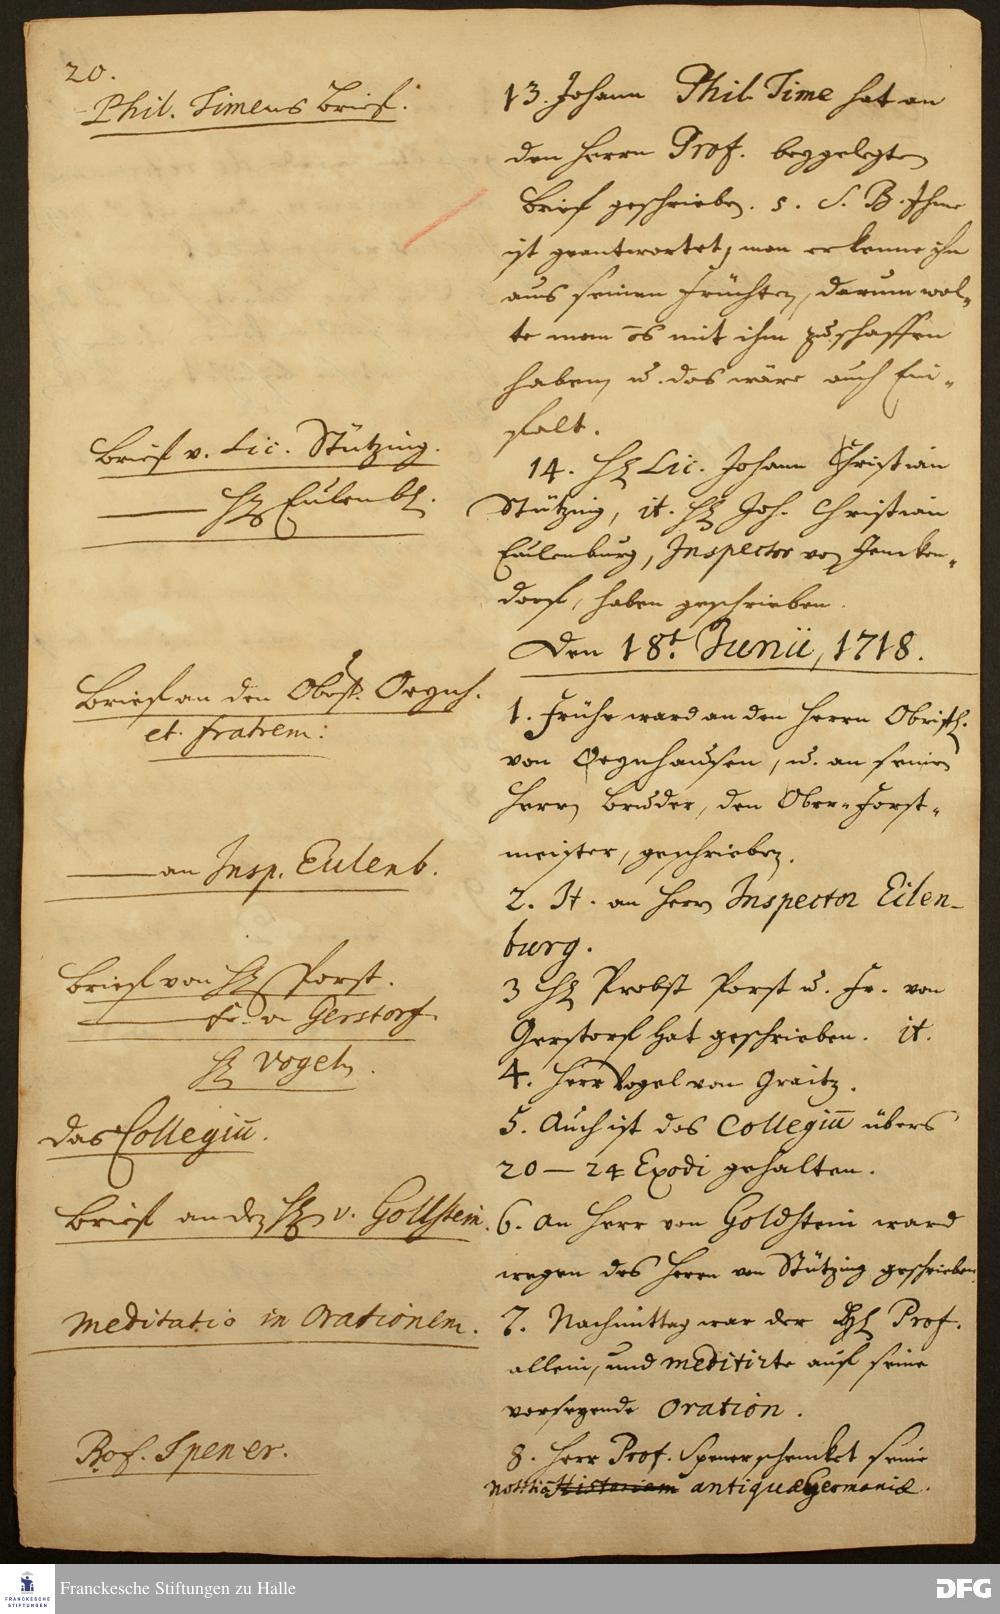 20.
Phil. Timens Brief.
13. Johann Phil. Time hat an
den Herrn Prof. beygelegten
Brief geschrieben. s. S. B. Ihme
ist geantwortet, man erkenne ihn
aus seinen Früchten, darum wol-
te man mit ihm zu schaffen
haben, u. das wäre auch Ein-
falt.
Brief v. Lic. Stützing.
14. H. Lic. Johann Christian
H. Eulenb.
Stützing, it. H. Joh. Christian
Eulenburg, Inspector von Jencken-
dorf, haben geschrieben.
Den 18t. Junii, 1718.
Brief an den Obrist. Oeynh.
et fratrem:
1. Frühe ward an den Herrn Obristl.
von Oeynhausen, u. an seinen
Herrn Bruder, den Ober-Forst-
meister, geschrieben.
an Insp. Eulenb.
2. It. an Herrn Inspector Eilen-
burg.
Brief von H. Porst.
3 H. Probst Porst u. Fr. von
Fr. v. Gerstorf.
Gerstorf hat geschrieben. it.
H. Vogel.
4. Herr Vogel von Graitz.
Das Collegiū.
5. Auch ist das Collegiū übers
20 — 24 Exodi gehalten.
Brief an den H. v. Gollstein.
6. An Herr von Goldstein ward
wegen des Herrn von Stützing geschrieben
meditatio in orationem.
7. Nachmittag war der H. Prof.
allein, und meditirte auf seine
vorseyende oration.
Prof. Spener.
8. Herr Prof. Spener schencket seine
Notitiā Historiam antiquae Germaniae.
Franckesche Stiftungen zu Halle
FRANCKESCHE
STIFTUNGEN
DFG